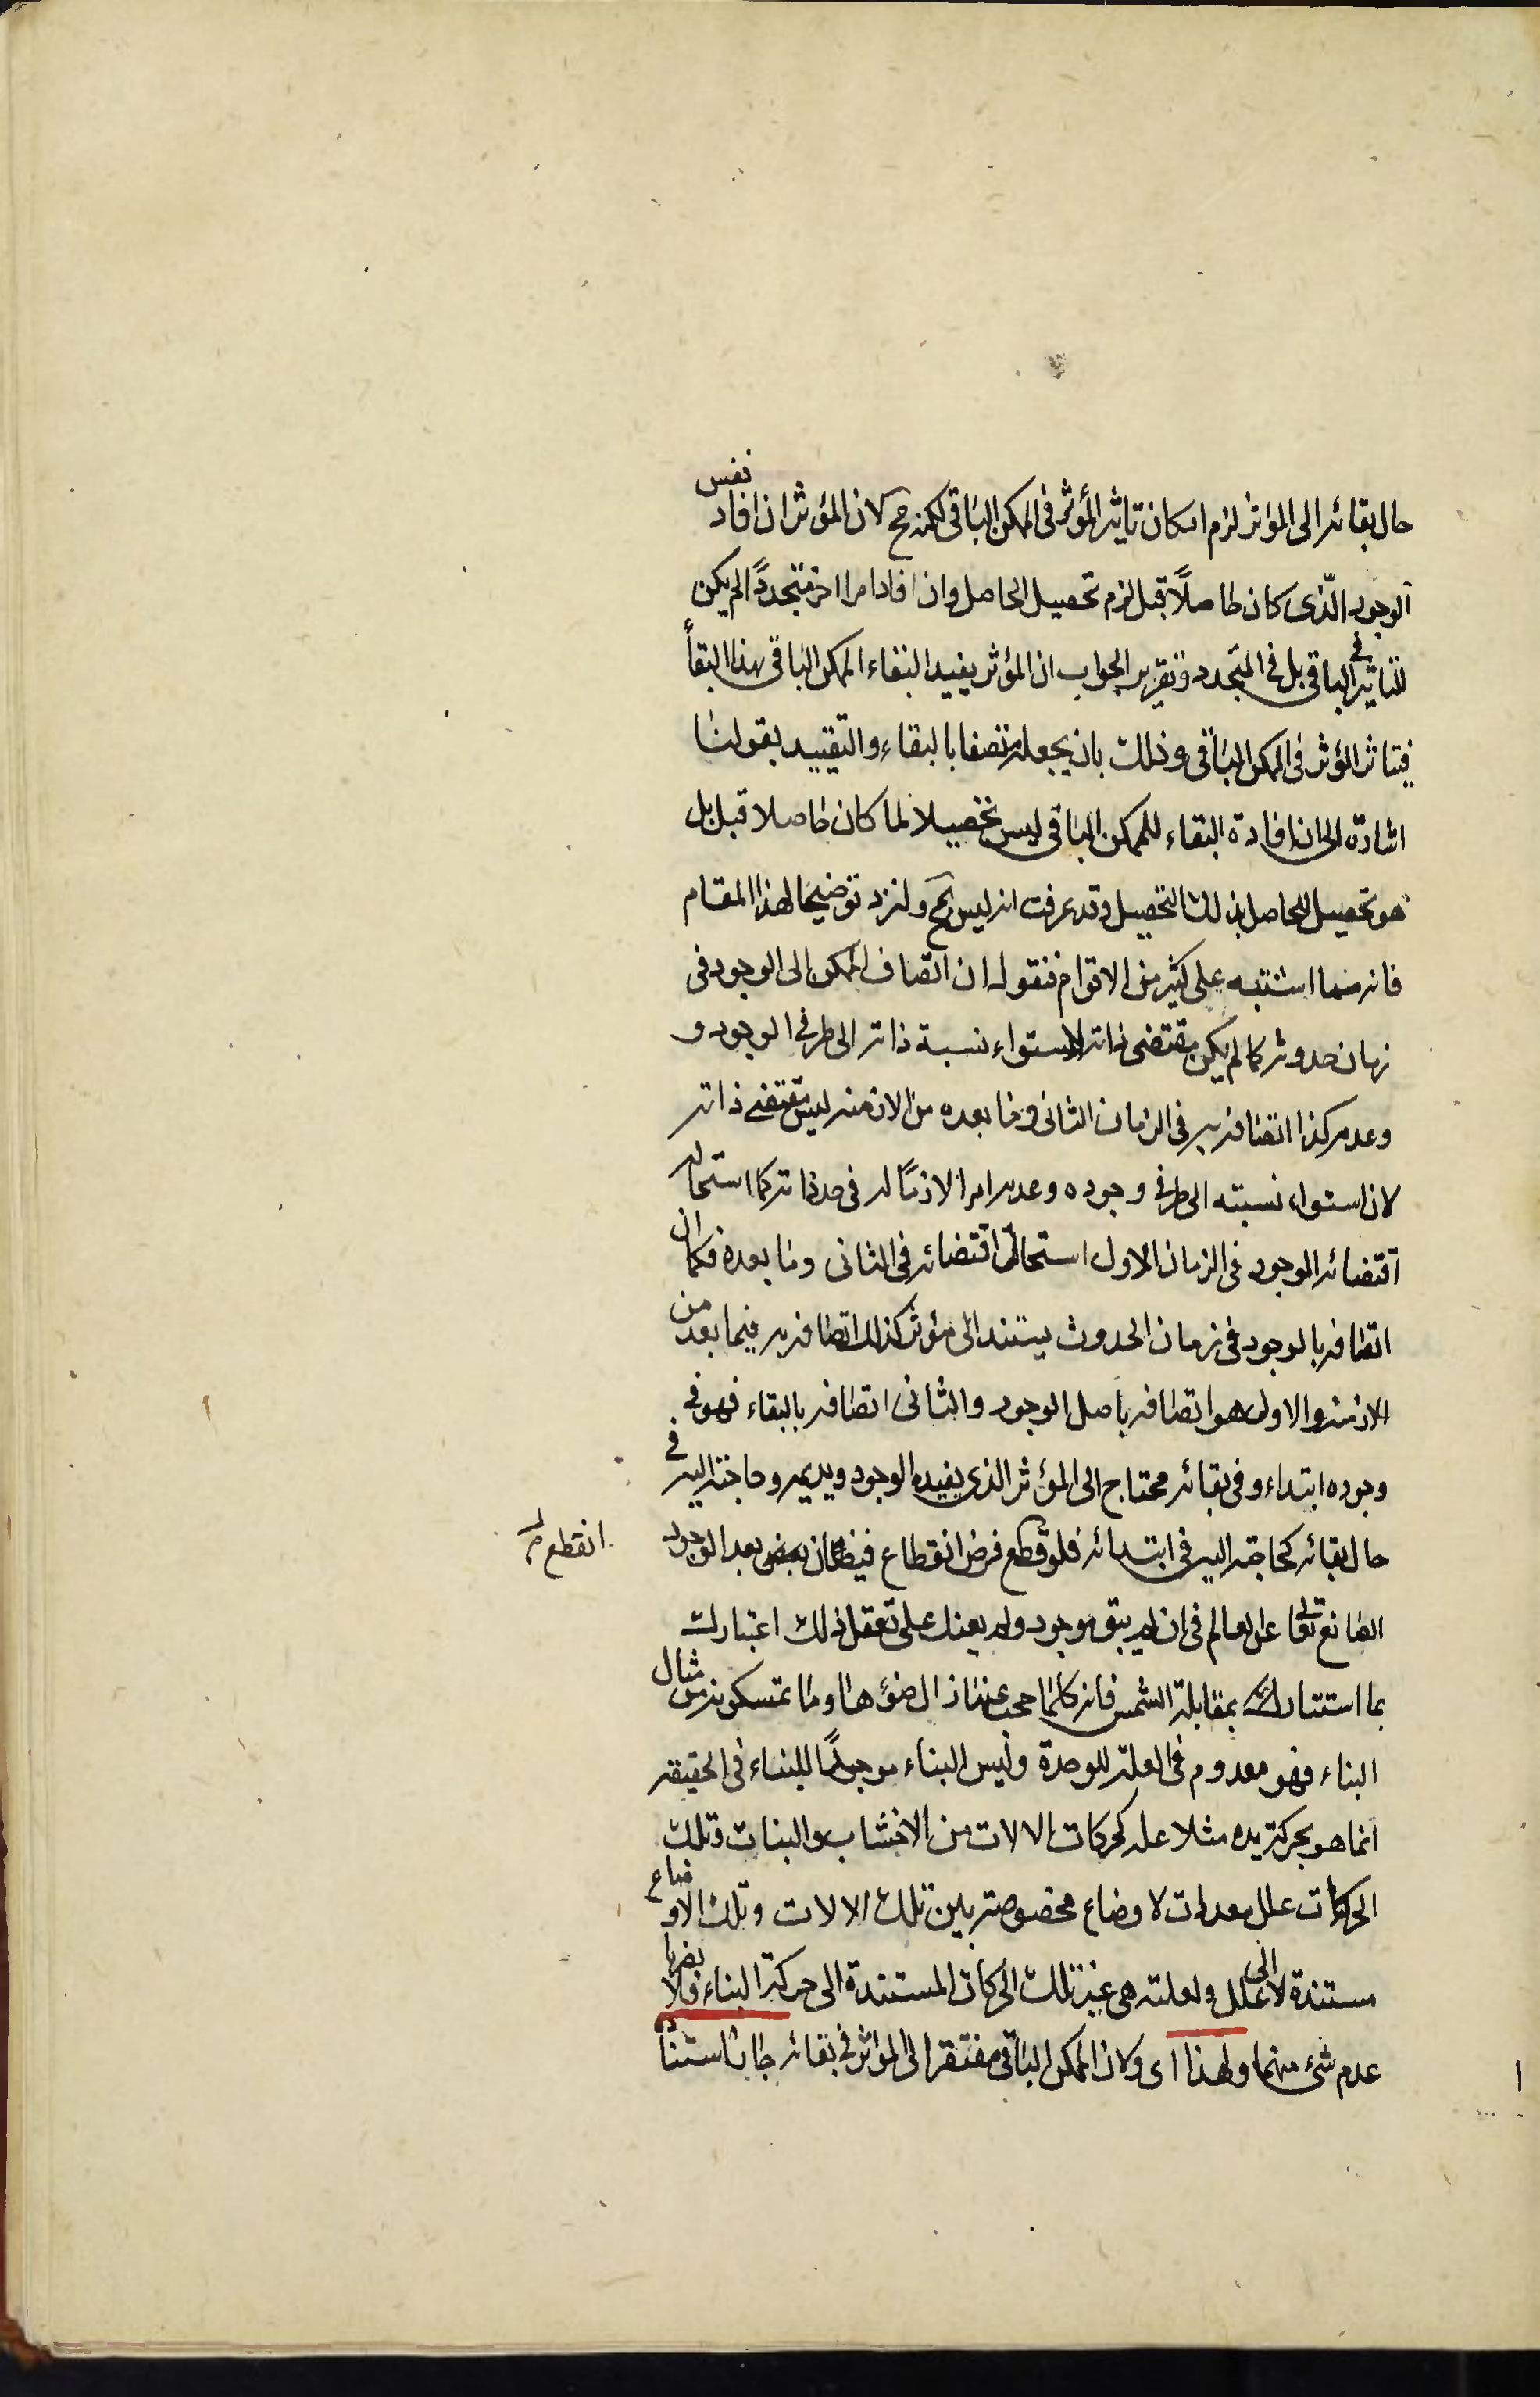 حال بقائه الى المؤثر لزم امكان تاثير المؤثر فى الممكن الباقى لكنه مح لان المؤثر ان افاد نفس
الوجود الّذى كان حاصلاً قبل لزم تحصيل الحاصل وان افاد امرا اخر متجددًا لم يكن
التاثير فى الباقى بل فى المتجدد وتقرير الجواب ان المؤثر يفيد البقاء الممكن الباقى بهذا البقأ
فيتاثر المؤثر فى الممكن الباقى وذلك بان يجعله متصفا بالبقاء والتقييد بقولنا
اشارة الى ان افادة البقاء للممكن الباقى ليس تحصيلا لما كان حاصلا قبل بل
هو تحصيل للحاصل بذلك التحصيل وقد عرفت انه ليس بمح ولنزد توضيحا لهذا المقام
فانه مما اشتبه على كثير من الاقوام فنقول ان اتصاف الممكن الى الوجود فى
زمان حدوثه كما لم يكن مقتضى ذاته لاستواء نسبة ذاته الى طرفى الوجود و
وعدمه كذا اتصافه به فى الزمان الثانى وما بعده من الازمنه ليس مقتضى ذاته
لان استواء نسبته الى طرفى وجوده وعدمه امرا لازمًا له فى حد ذاته كما استحاله
اقتضائه الوجود فى الزمان الاول استحالة اقتضائه فى الثانى وما بعده فكما ان
اتصافه بالوجود فى زمان الحدوث يستند الى مؤثر كذلك اتصافه به فيما بعد من
الازمنه والاول هو اتصافه باصل الوجود والثانى اتصافه بالبقاء فهو فى
وجوده ابتداء وفى بقائه محتاج الى المؤثر الذى يفيده الوجود ويديمه وحاجته اليه فى
حال بقائه كحاجته اليه فى ابتدائه فلو قطع فرض انقطاع فيضان بعض بعد الوجود
انقطع
الصانع تعالى عن العالم فى ان لم يبق موجود ولم يعنك على تعقل ذلك اعتبارك
بما استنار بمقابلة الشمس فانه كلما حجب عنها زال ضوءها وما تمسكوا به من مثال
البناء فهو معدوم فى العلة للوحدة وليس البناء موجدًا للبناء فى الحقيقه
انما هو بحركة يده مثلا علة لحركات الالات من الاخشاب والبنات وتلك
الحركات علل معدات لاوضاع مخصوصة بين تلك الالات وتلك الاوضاع
مستندة الى علل ولعلته هى غير تلك الحركات المستندة الى حركة البناء فلا يضرها
عدم شئ منهما ولهذا اى ولان الممكن الباقى مفتقر الى المؤثر فى بقائه جاز استنا